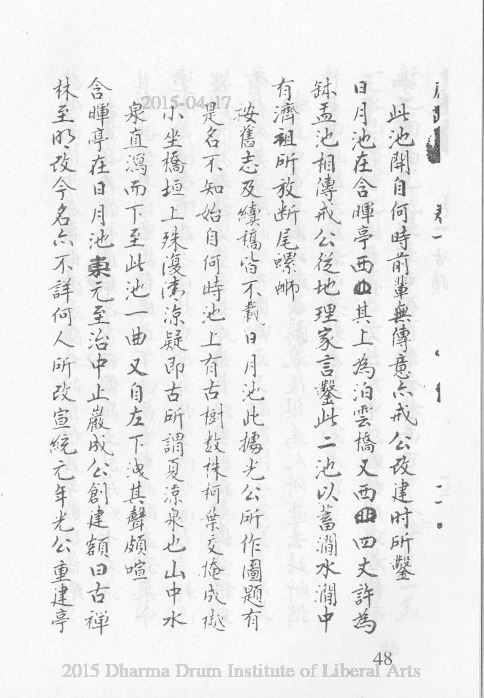 此池開自何時前輩無傳意亦戒公改建時所鑿
日月池在含暉亭西其上為泊雲橋又西四丈許為
鉢盂池相傳戒公從地理家言鑿此二池以蓄澗水澗中
有濟祖所放斷尾螺螄
按舊志及續稿皆不載日月池此據光公所作圖題有
是名不知始自何時池上有古樹數株柯葉交掩成
小坐橋垣上殊復清涼疑即古所謂夏涼泉也山中水
泉直瀉而下至此池一曲又自左下洩其聲頗喧
含暉亭在日月池東元至治中止巖成公創建額曰古禪
林至明改今名亦不詳何人所改宣統元年光公重建亭
卷一
48
2015-04-17
2015 Dharma Drum Institute of Liberal Arts